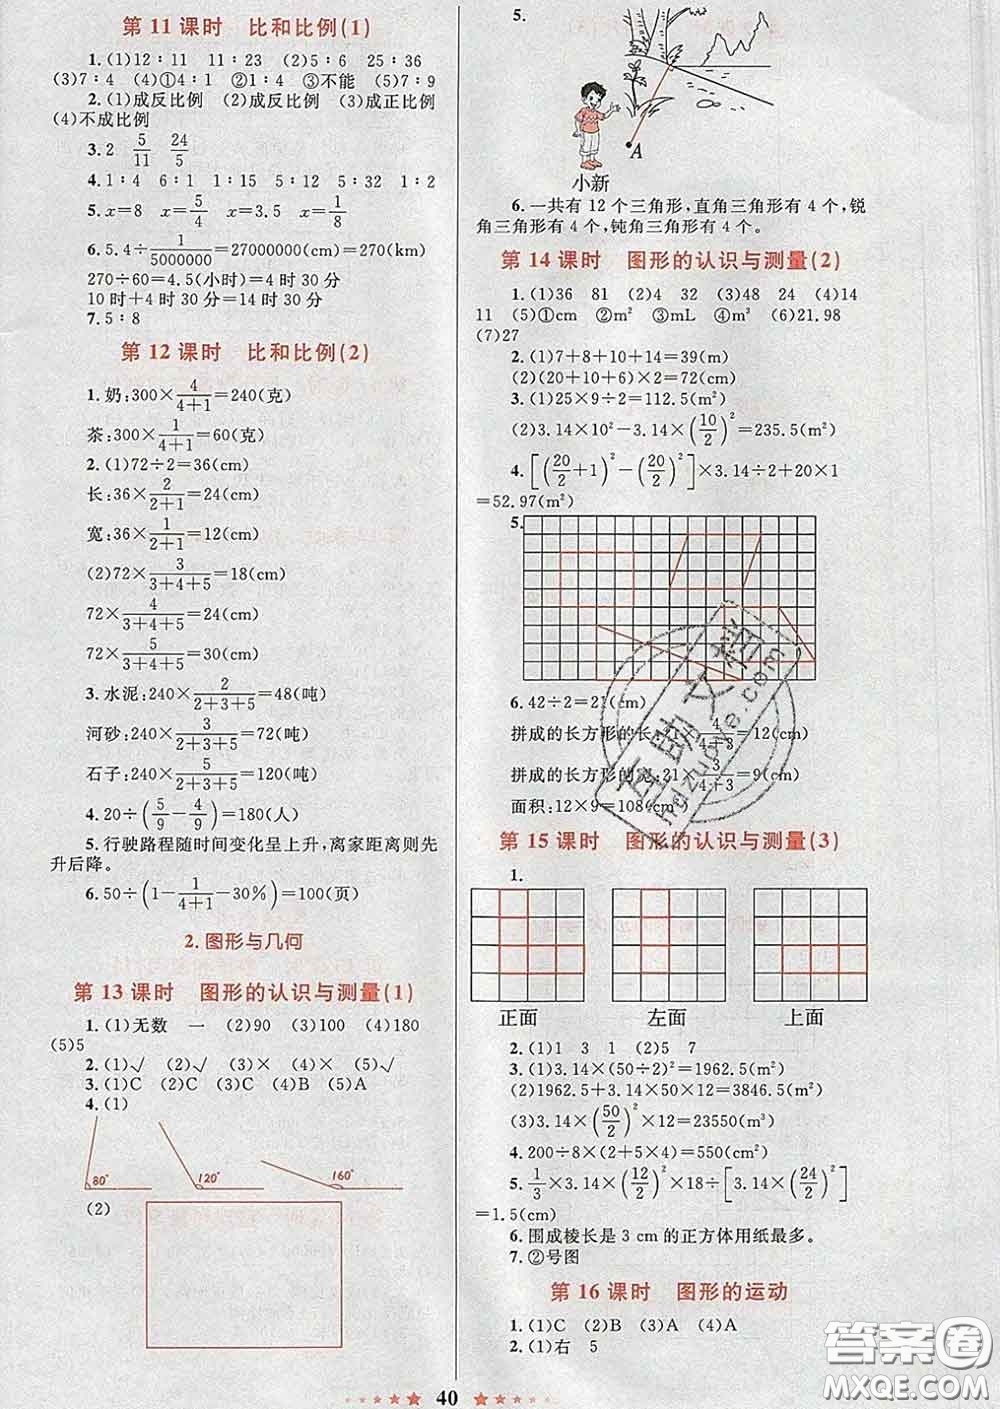 第 11 课时　比和比例(1)
1.(1)12∶11　11∶23　(2)5∶6　25∶36
(3)7∶4　(4)①4∶1　②1∶4　③不能　(5)7∶9
2.(1)成反比例　(2)成反比例　(3)成正比例
(4)不成比例
3.2　5/11　24/5
4.1∶4　6∶1　1∶15　5∶12　5∶32　1∶2
5.x=8　x=5/4　x=3.5　x=1/8
6.5.4÷1/5000000=27000000(cm)=270(km)
270÷60=4.5(小时)=4 时 30 分
10 时+4 时 30 分=14 时 30 分
7.5∶8
第 12 课时　比和比例(2)
1.奶:300×4/(4+1)=240(克)
茶:300×1/(4+1)=60(克)
2.(1)72÷2=36(cm)
长:36×2/(2+1)=24(cm)
宽:36×1/(2+1)=12(cm)
(2)72×3/(3+4+5)=18(cm)
72×4/(3+4+5)=24(cm)
72×5/(3+4+5)=30(cm)
3.水泥:240×2/(2+3+5)=48(吨)
河砂:240×3/(2+3+5)=72(吨)
石子:240×5/(2+3+5)=120(吨)
4.20÷(5/9-4/9)=180(人)
5.行驶路程随时间变化呈上升,离家距离则先
升后降。
6.50÷(1-1/(4+1)-30%)=100(页)
2.图形与几何
第 13 课时　图形的认识与测量(1)
1.(1)无数　一　(2)90　(3)100　(4)180
(5)5
2.(1)√　(2)√　(3)×　(4)×　(5)√
3.(1)C　(2)C　(3)C　(4)B　(5)A
4.(1)
80°　120°　160°
(2)
5.
A
小新
6.一共有 12 个三角形,直角三角形有 4 个,锐
角三角形有 4 个,钝角三角形有 4 个。
第 14 课时　图形的认识与测量(2)
1.(1)36　81　(2)4　32　(3)48　24　(4)14
11　(5)①cm　②m²　③mL　④m²　(6)21.98
(7)27
2.(1)7+8+10+14=39(m)
(2)(20+10+6)×2=72(cm)
3.(1)25×9÷2=112.5(m)
(2)3.14×10²-3.14×(10/2)²=235.5(m²)
4.[(20/2+1)²-(20/2)²]×3.14÷2+20×1
=52.97(m²)
5.
6.42÷2=21(cm)
拼成的长方形的长:21×4/(4+3)=12(cm)
拼成的长方形的宽:21×3/(4+3)=9(cm)
面积:12×9=108(cm²)
第 15 课时　图形的认识与测量(3)
1.
正面　左面　上面
2.(1)1　3　1　(2)5　7
3.(1)3.14×(50÷2)²=1962.5(m²)
(2)1962.5+3.14×50×12=3846.5(m²)
(3)3.14×(50/2)²×12=23550(m³)
4.200÷8×(2+5×4)=550(cm²)
5.1/3×3.14×(12/2)²×18÷[3.14×(24/2)²]
=1.5(cm)
6.围成棱长是 3 cm 的正方体用纸最多。
7.②号图
第 16 课时　图形的运动
1.(1)C　(2)B　(3)A　(4)A
2.(1)右　5
40
答案圈
MXQE.COM